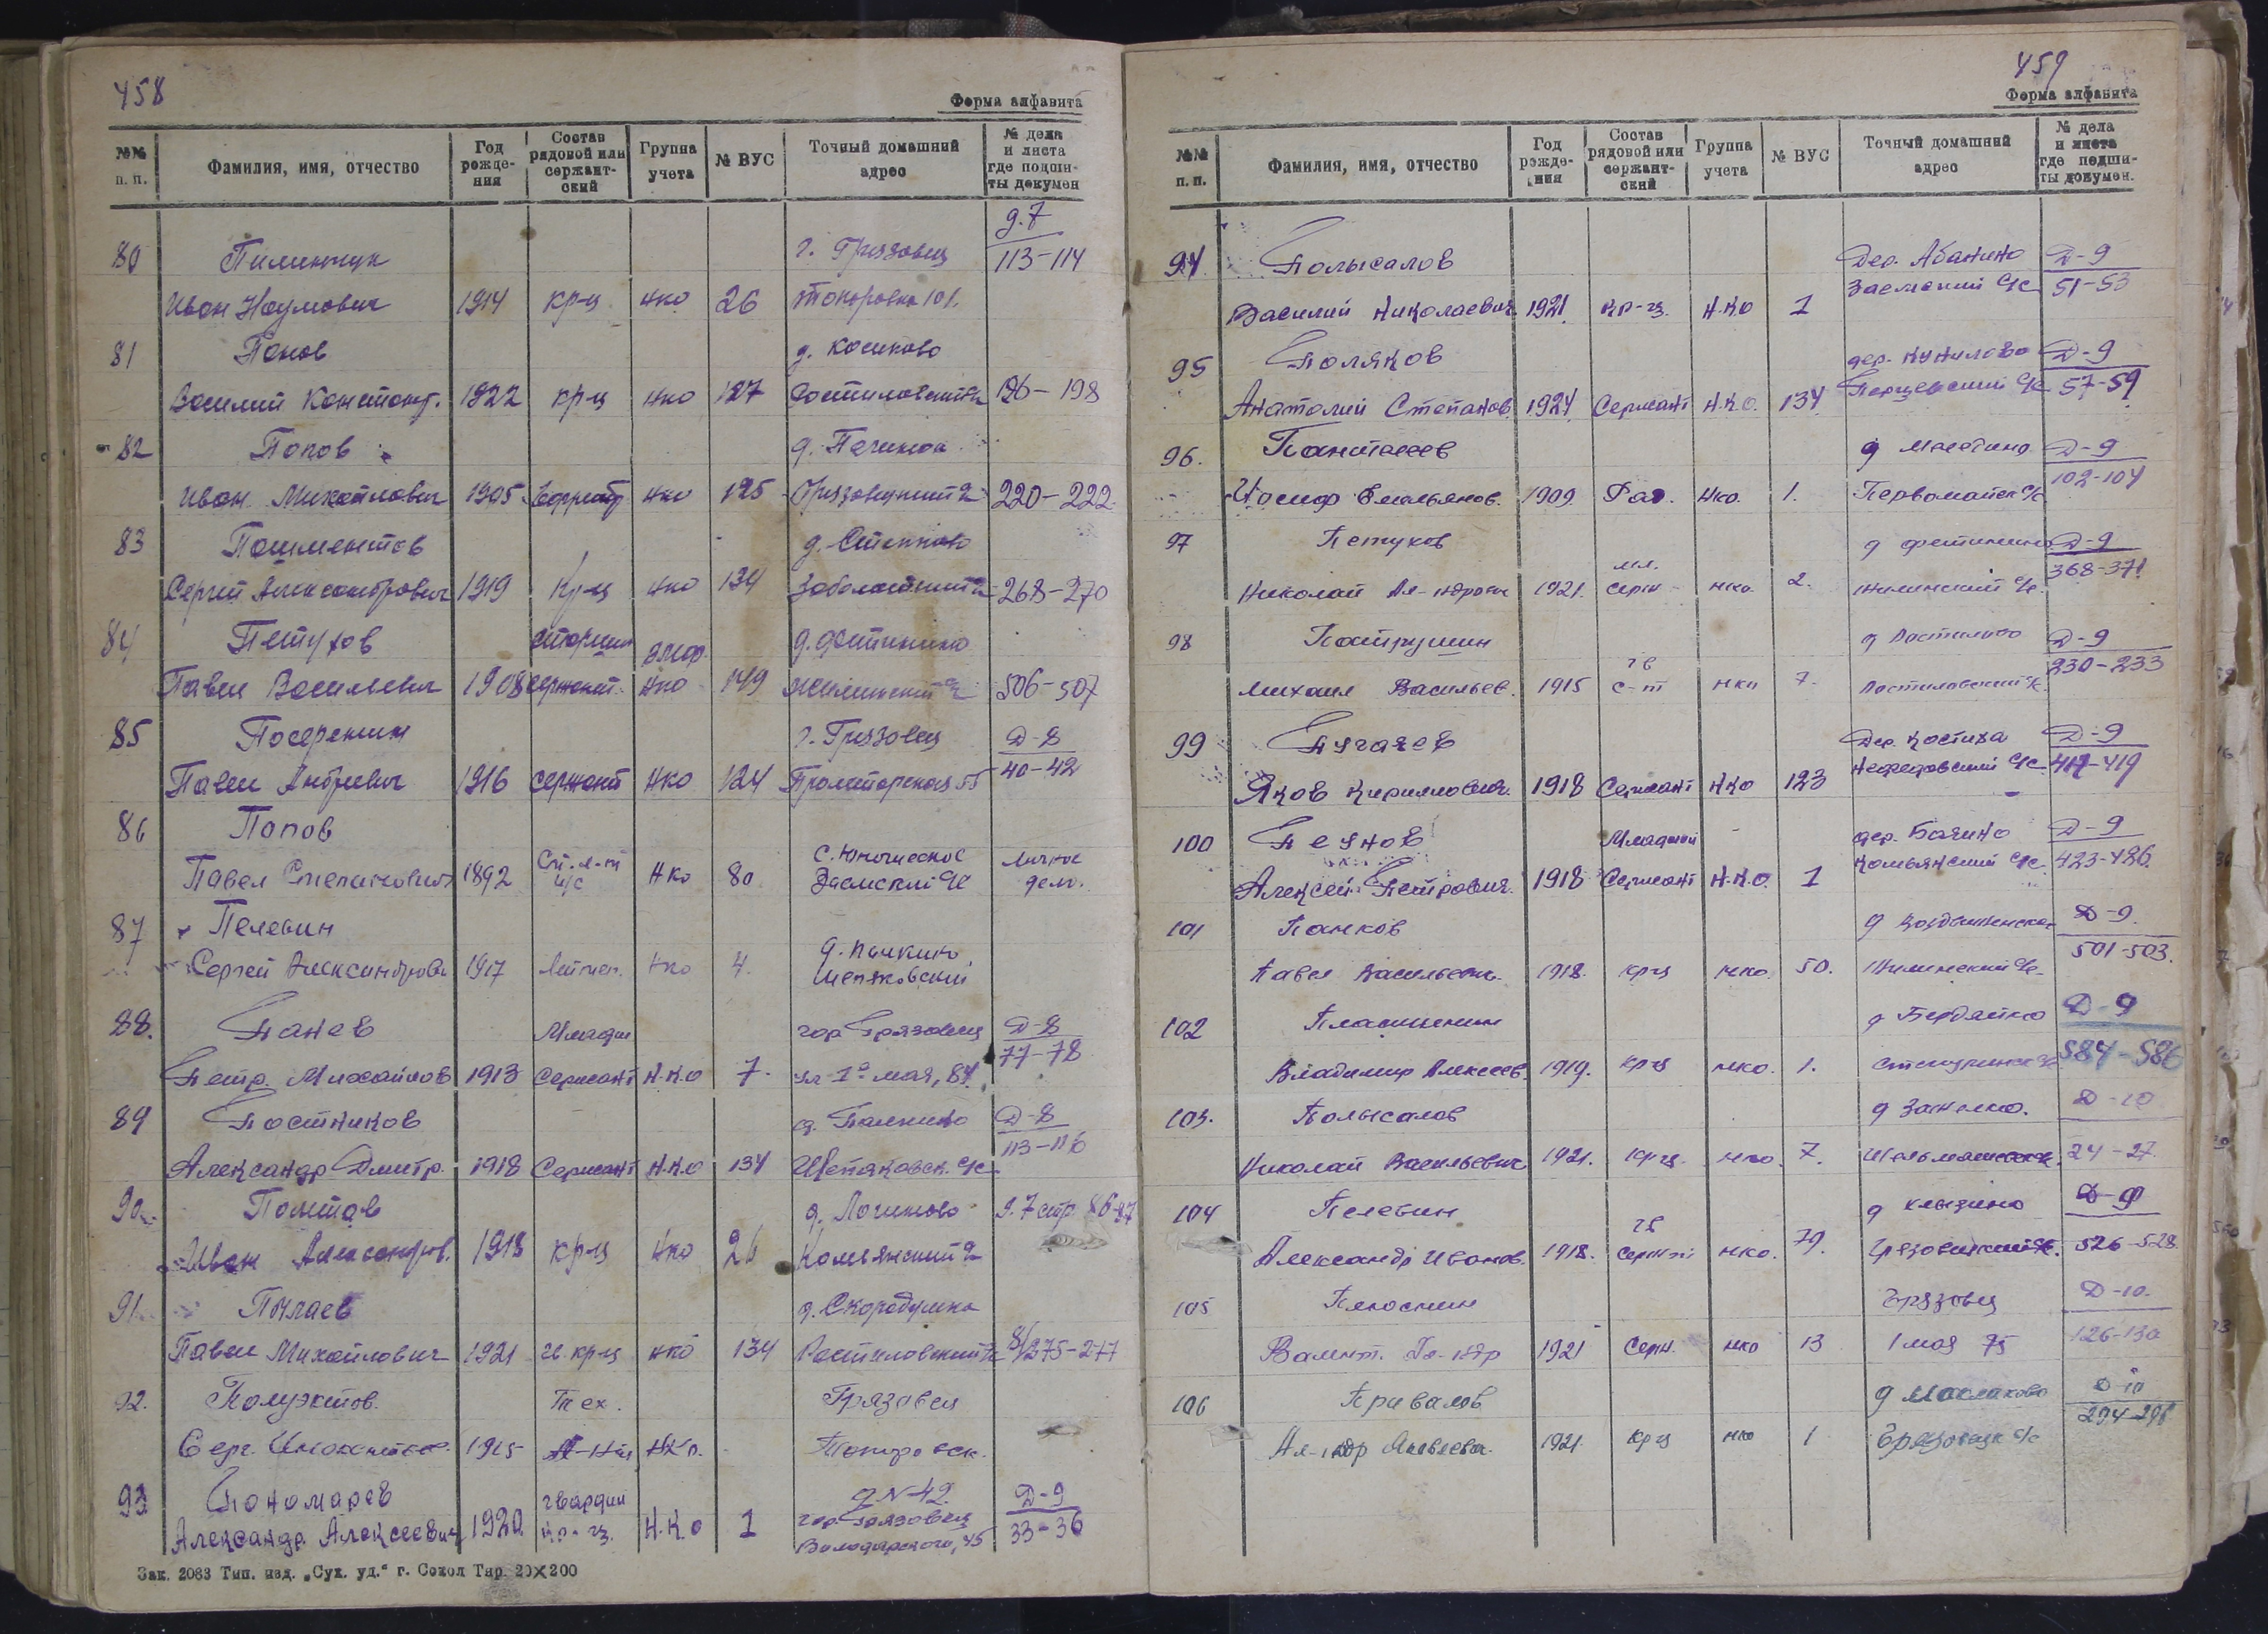 458
Форма алфавита
№№ п. п. | Фамилия, имя, отчество | Год рождения | Состав рядовой или сержантский | Группа учета | № ВУС | Точный домашний адрес | № дела и листа где подшиты докумен
д. 7
80 Пилинчук г. Грязовец 113-114
Иван Наумович 1914 кр-ц нко 26
81 Панов
Василий Констант. 1922 кр-ц нко 127 196-198
82 Попов д. Печинок
Иван Михайлович 1905 нко 125 220-222
83 д.
Сергей Александрович 1919 кр-ц нко 134 268-270
84 Петухов старши д. Фетинино
Павел Васильевич 1908 сержант нко 149 Жилинский 506-507
85 Посеренин г. Грязовец Д-8
Павел Андреевич 1916 сержант нко 124 Пролетарская 55 40-42
86 Попов
Павел Степанович 1892 нко 80 с. Юношеское Заемский с/с личное дело.
87 Пелевин
Сергей Александрови 1917 нко 4.
88. Панев Младш гор Грязовец Д-8
Петр. Михайлов 1913 Сержант Н.К.О 7. ул 1о мая, 84 77-78
89 Постников д. Палкино Д-8
Александр Дмитр. 1918 Сержант Н.К.О 134 Шепяковск. с/с 113-116
90. д. Логиново д. 7 стр 86-87
Иван Александров. 1918 кр-ц нко 26 Комьянский
91. Пылаев д. Скородумка
Павел Михайлович 1921 гв кр-ц нко 134 Ростиловский 8/275-277
92. Полуэктов. Тех. Грязовец
Серг. 1915 НКо.
93 Пономарев гвардии Д-9
Александр Алексеевич 1920 кр-ц. Н.К.О 1 гор. Грязовец Володарского, 45 33-36
Зак. 2083 Тип. изд. „Сух. уд.“ г. Сокол Тир. 20×200
459
Форма алфавита
№№ п. п. | Фамилия, имя, отчество | Год рождения | Состав рядовой или сержантский | Группа учета | № ВУС | Точный домашний адрес | № дела и листа где подшиты докумен.
94 Полысалов Дер. Абанино Д-9
Василий Николаевич 1921 кр-ц. Н.К.О 1 Заемский с/с 51-53
95 Поляков дер. Д-9
Анатолий Степанов 1924 Сержант Н.К.О. 134 Перцевский с/с 57-59
96. Пантелеев д Д-9
Иосиф Емельянов. 1909. Ряд. Нко. 1. Первомайск с/с 102-104
97 Петухов д фетинино Д-9
Николай Ал-ндрович 1921. мл. серж нко. 2. Жилинский с/с. 368-371
98 Патрушин д Ростилово Д-9
Михаил Васильев. 1915 гв с-т нко 7. Ростиловский с/с. 230-233
99 Пугачев Дер. Костиха Д-9
Яков Кириллович. 1918 Сержант НКО 123 Нефедовский с/с 417-419
100 Пеунов Младший дер. Бакино Д-9
Алексей Петрович. 1918 Сержант Н.К.О. 1 Комьянский с/с 423-426
101 Панков д Воздвиженское Д-9.
Павел Васильевич. 1918. кр-ц нко. 50. Жилинский с/с. 501-503.
102 д Бердяйка Д-9
Владимир Алексеев. 1919. кр-ц нко. 1. 584-586
103. Полысалов Д-10
Николай Васильевич 1921. кр-ц нко. 7. 24-27
104 Пелевин д Клызино Д-9
Александр Иванов. 1918. гв сержт нко. 79. Грязовецкий с/с. 526-528
105 Плюснин Грязовец Д-10.
Валент. Ал-ндр 1921 Серж. нко 13 1 мая 75 126-130
106 Привалов д Маслаково Д-10
Ал-ндр 1921. кр-ц нко 1 Грязовецк с/с